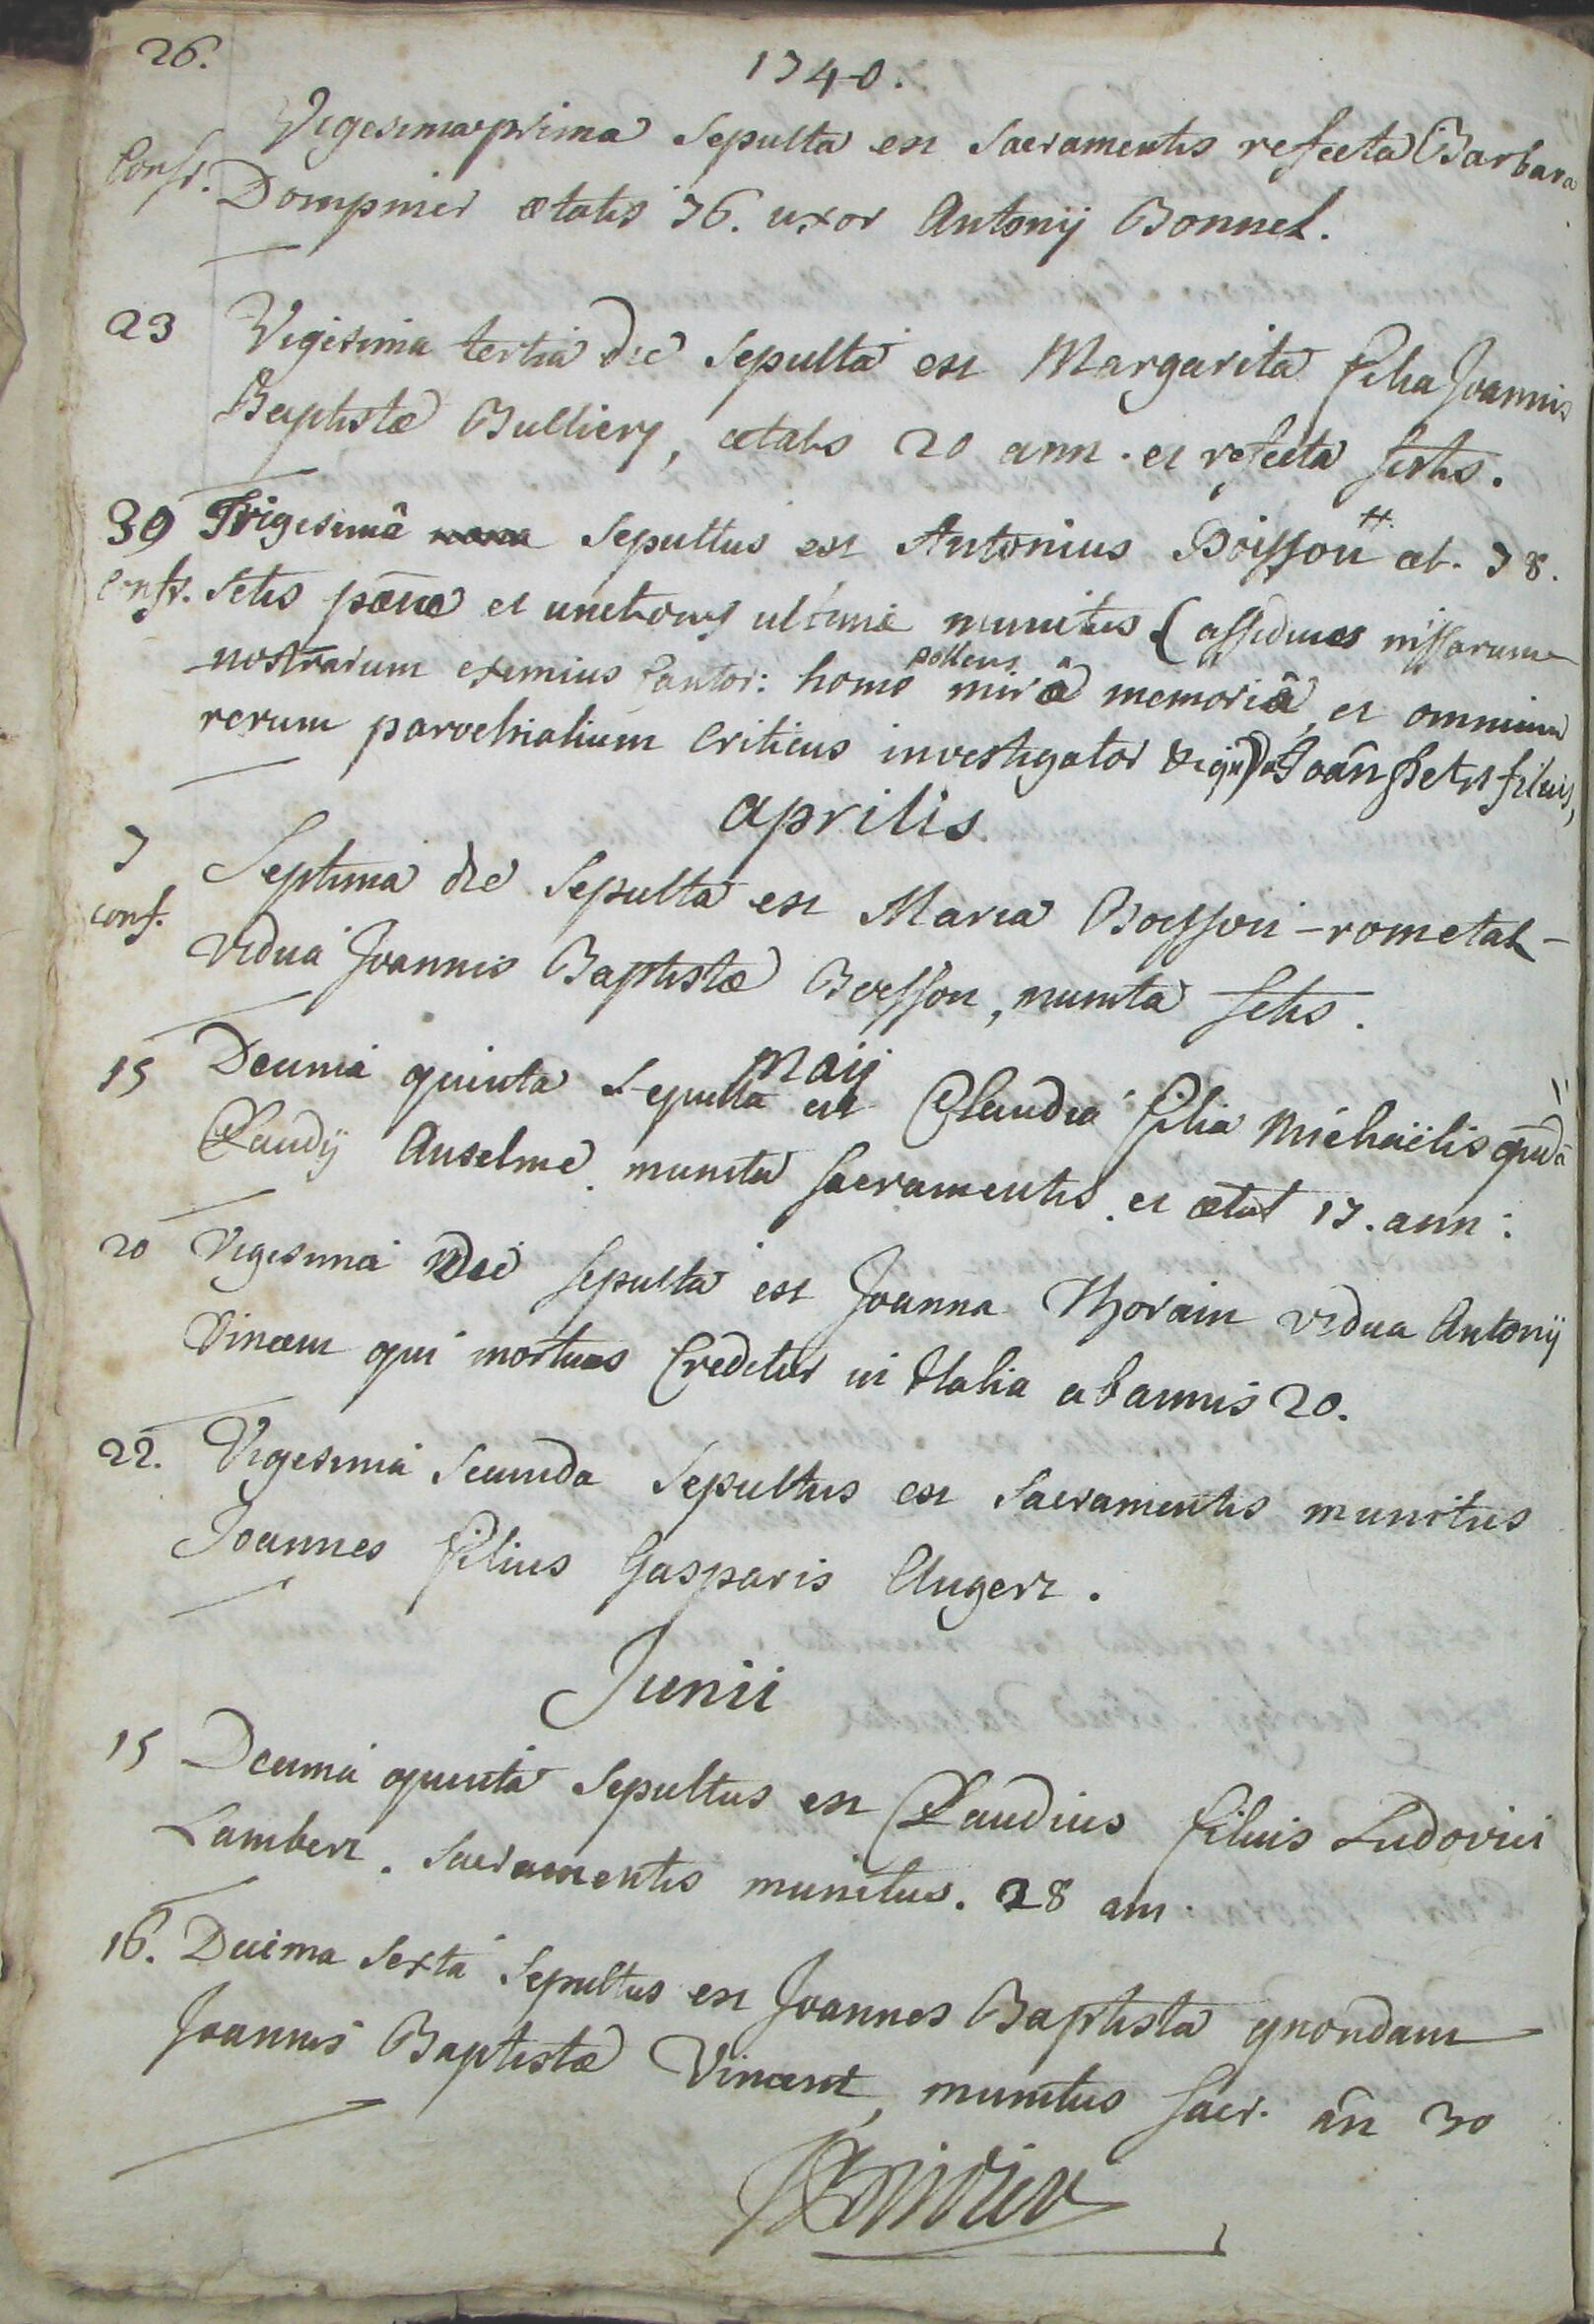 26.
1740.
Vigesima prima Sepulta est Sacramentis refecta Barbara
Confr. Dompnier ætatis 76. uxor Antonij Bonnel.
23 Vigesima tertia die Sepulta est Margarita filia Joannis
Baptistæ Bulliery, ætatis 20 ann. et refecta sctis.
30 Trigesimâ Sepultus est Antonius Boisson æt. 78.
Confr. Sctis pœnæ et unctionis ultimæ munitus (assiduus missarum
nostrarum eximius Cantor: homo pollens mirâ memoriâ, et omnium
rerum parochialium Criticus investigator Joan̄ filius,
aprilis
7 Septima die Sepulta est Maria Boisson-rometat-
conf. vidua Joannis Baptistæ Boisson, munita sctis.
maij
15 Decima quinta Sepulta est Claudia filia Michaëlis qud̄ā
Claudij Anselme. munita Sacramentis. et ætat 17. ann:
20 Vigesima die sepulta est Joanna Thorain vidua Antonij
Vincen qui mortuus Creditur in Italia ab annis 20.
22. Vigesima Secunda Sepultus est Sacramentis munitus
Joannes filius Gasparis Augert.
Junii
15 Decima quinta Sepultus est Claudius filius Ludovici
Lambert. Sacramentis munitus. 28 an.
16. Decima Sexta Sepultus est Joannes Baptista quondam
Joannis Baptistæ Vincent, munitus Sacr. an̄ 30